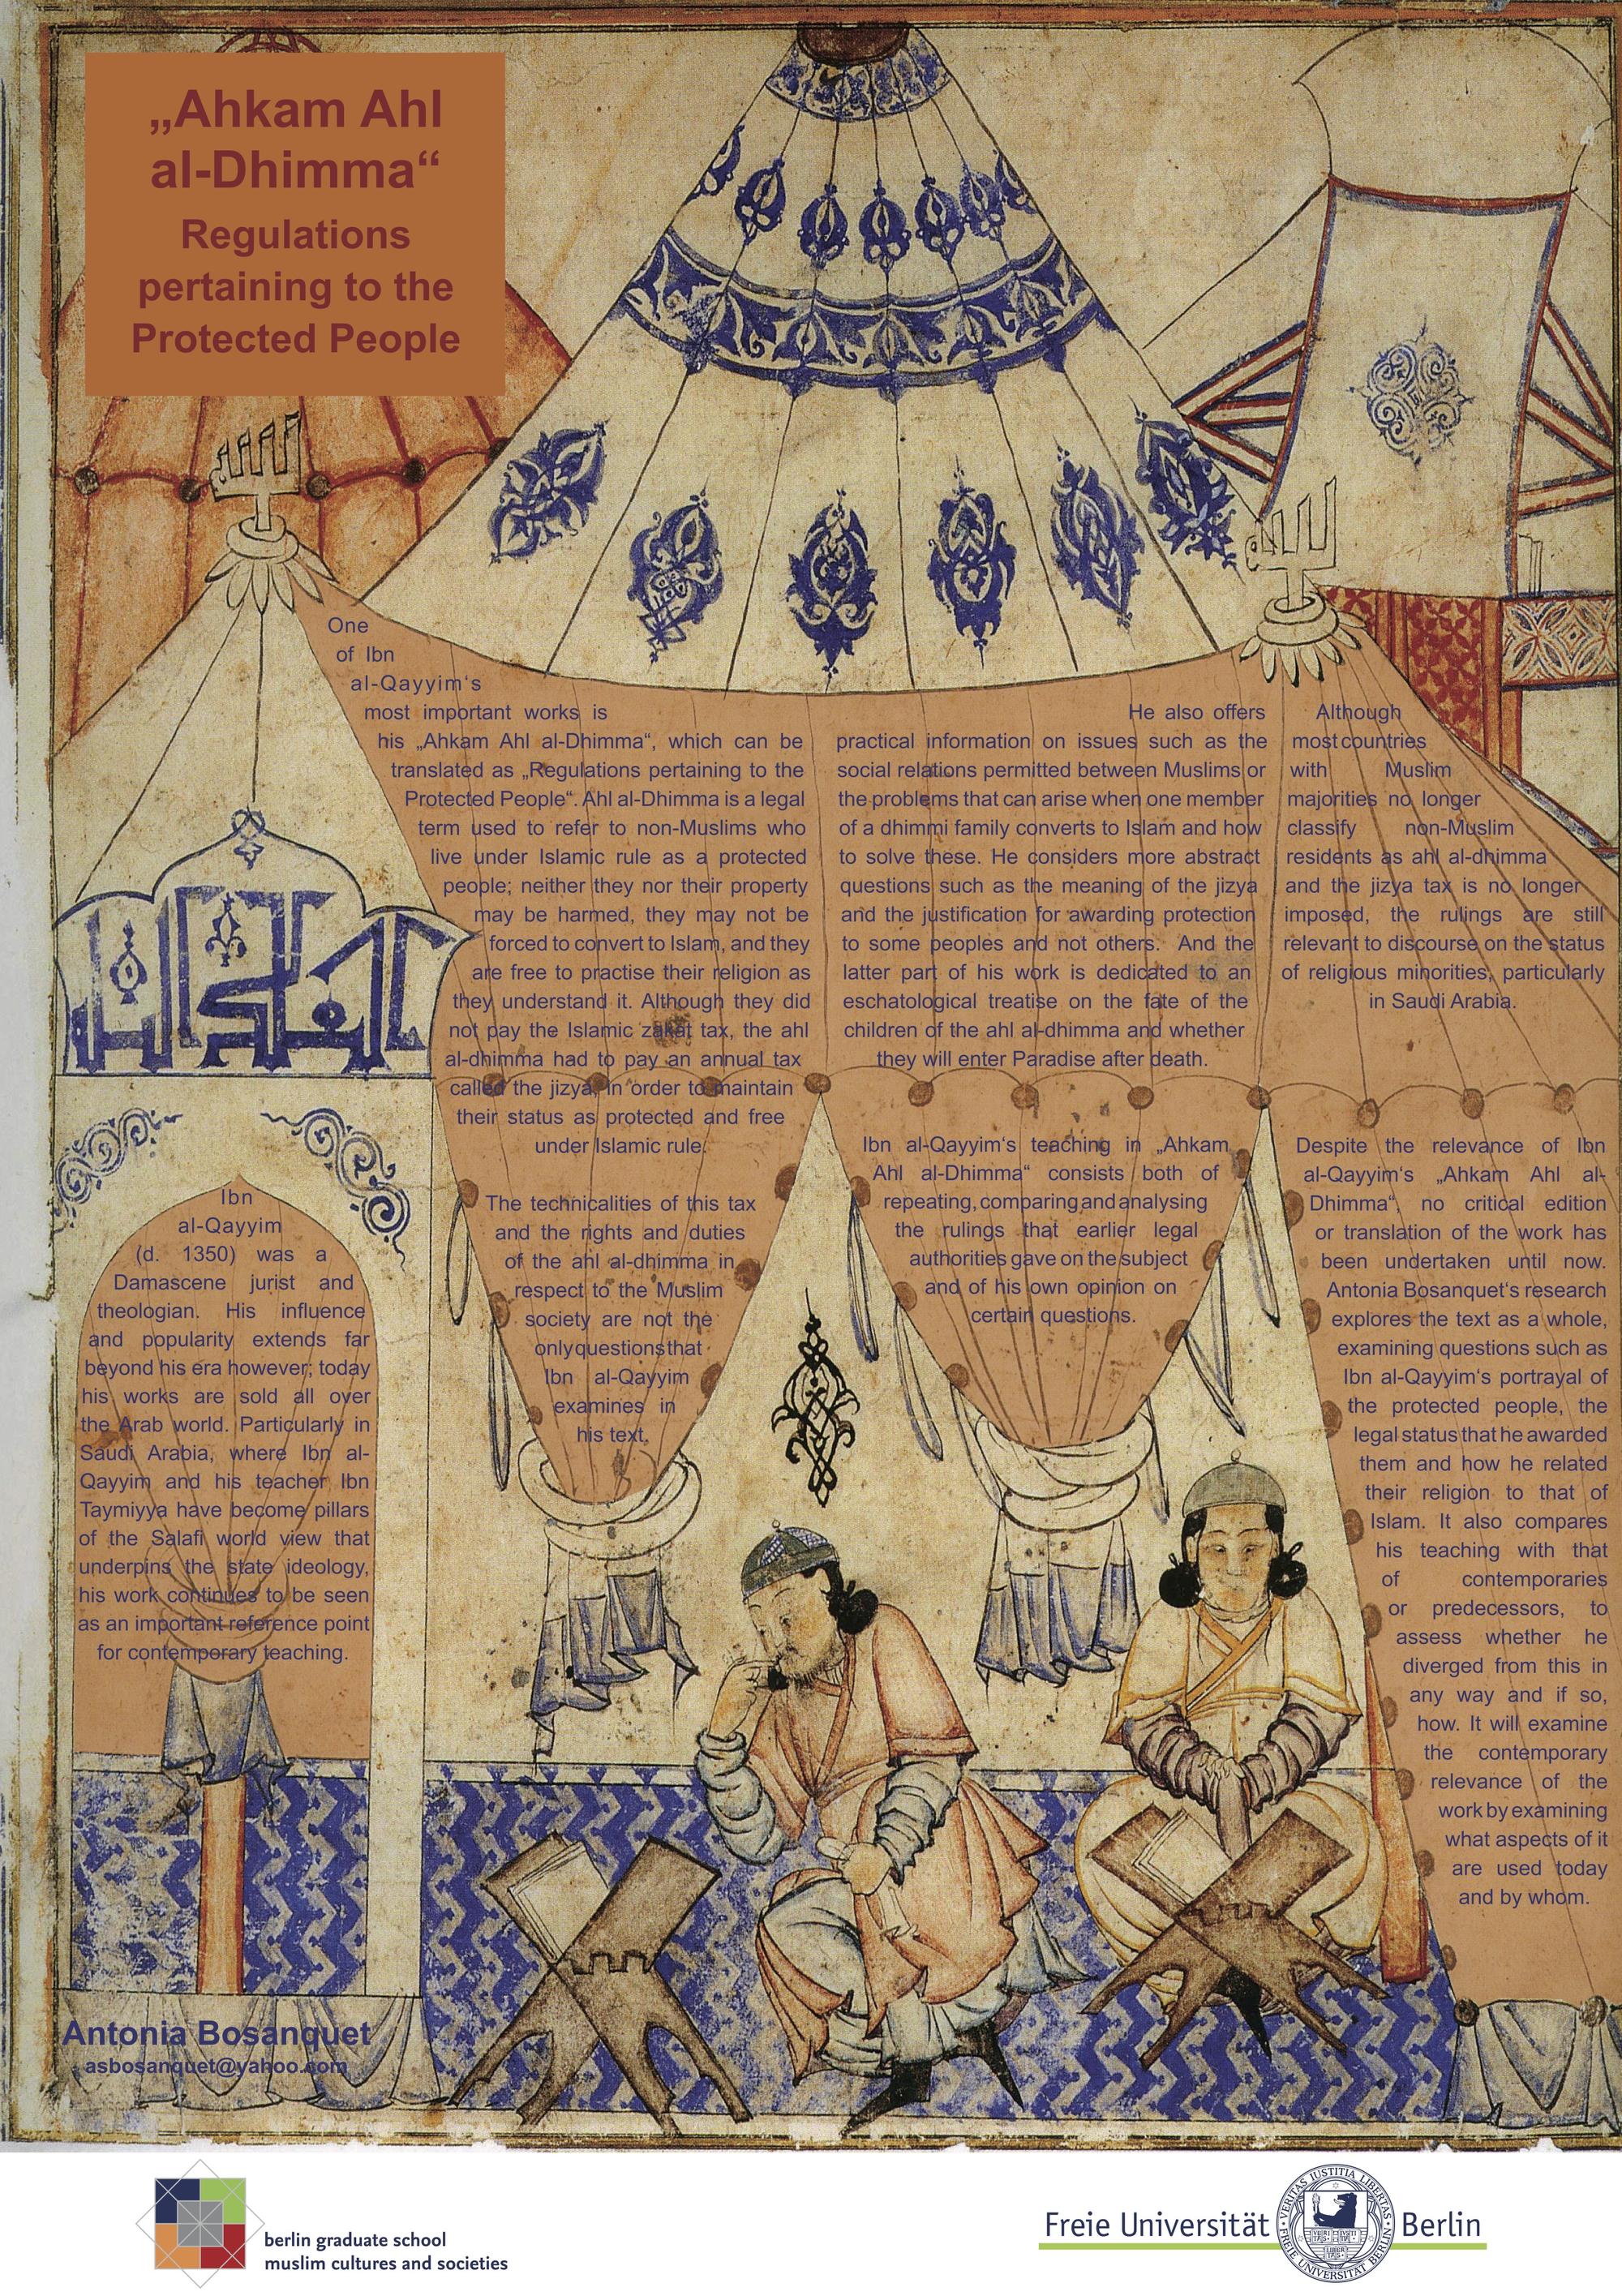 „Ahkam Ahl
al-Dhimma“
Regulations
pertaining to the
Protected People
الله
الله
Ibn
al-Qayyim
(d. 1350) was a
Damascene jurist and
theologian. His influence
and popularity extends far
beyond his era however; today
his works are sold all over
the Arab world. Particularly in
Saudi Arabia, where Ibn al-
Qayyim and his teacher Ibn
Taymiyya have become pillars
of the Salafi world view that
underpins the state ideology,
his work continues to be seen
as an important reference point
for contemporary teaching.
One
of Ibn
al-Qayyim‘s
most important works is
his „Ahkam Ahl al-Dhimma“, which can be
translated as „Regulations pertaining to the
Protected People“. Ahl al-Dhimma is a legal
term used to refer to non-Muslims who
live under Islamic rule as a protected
people; neither they nor their property
may be harmed, they may not be
forced to convert to Islam, and they
are free to practise their religion as
they understand it. Although they did
not pay the Islamic zakat tax, the ahl
al-dhimma had to pay an annual tax
called the jizya, in order to maintain
their status as protected and free
under Islamic rule.
The technicalities of this tax
and the rights and duties
of the ahl al-dhimma in
respect to the Muslim
society are not the
only questions that
Ibn al-Qayyim
examines in
his text.
He also offers
practical information on issues such as the
social relations permitted between Muslims or
the problems that can arise when one member
of a dhimmi family converts to Islam and how
to solve these. He considers more abstract
questions such as the meaning of the jizya
and the justification for awarding protection
to some peoples and not others. And the
latter part of his work is dedicated to an
eschatological treatise on the fate of the
children of the ahl al-dhimma and whether
they will enter Paradise after death.
Ibn al-Qayyim‘s teaching in „Ahkam
Ahl al-Dhimma“ consists both of
repeating, comparing and analysing
the rulings that earlier legal
authorities gave on the subject
and of his own opinion on
certain questions.
Although
most countries
with Muslim
majorities no longer
classify non-Muslim
residents as ahl al-dhimma
and the jizya tax is no longer
imposed, the rulings are still
relevant to discourse on the status
of religious minorities, particularly
in Saudi Arabia.
Despite the relevance of Ibn
al-Qayyim‘s „Ahkam Ahl al-
Dhimma“, no critical edition
or translation of the work has
been undertaken until now.
Antonia Bosanquet‘s research
explores the text as a whole,
examining questions such as
Ibn al-Qayyim‘s portrayal of
the protected people, the
legal status that he awarded
them and how he related
their religion to that of
Islam. It also compares
his teaching with that
of contemporaries
or predecessors, to
assess whether he
diverged from this in
any way and if so,
how. It will examine
the contemporary
relevance of the
work by examining
what aspects of it
are used today
and by whom.
Antonia Bosanquet
asbosanquet@yahoo.com
berlin graduate school
muslim cultures and societies
Freie Universität Berlin
VERITAS IUSTITIA LIBERTAS
FREIE UNIVERSITÄT BERLIN